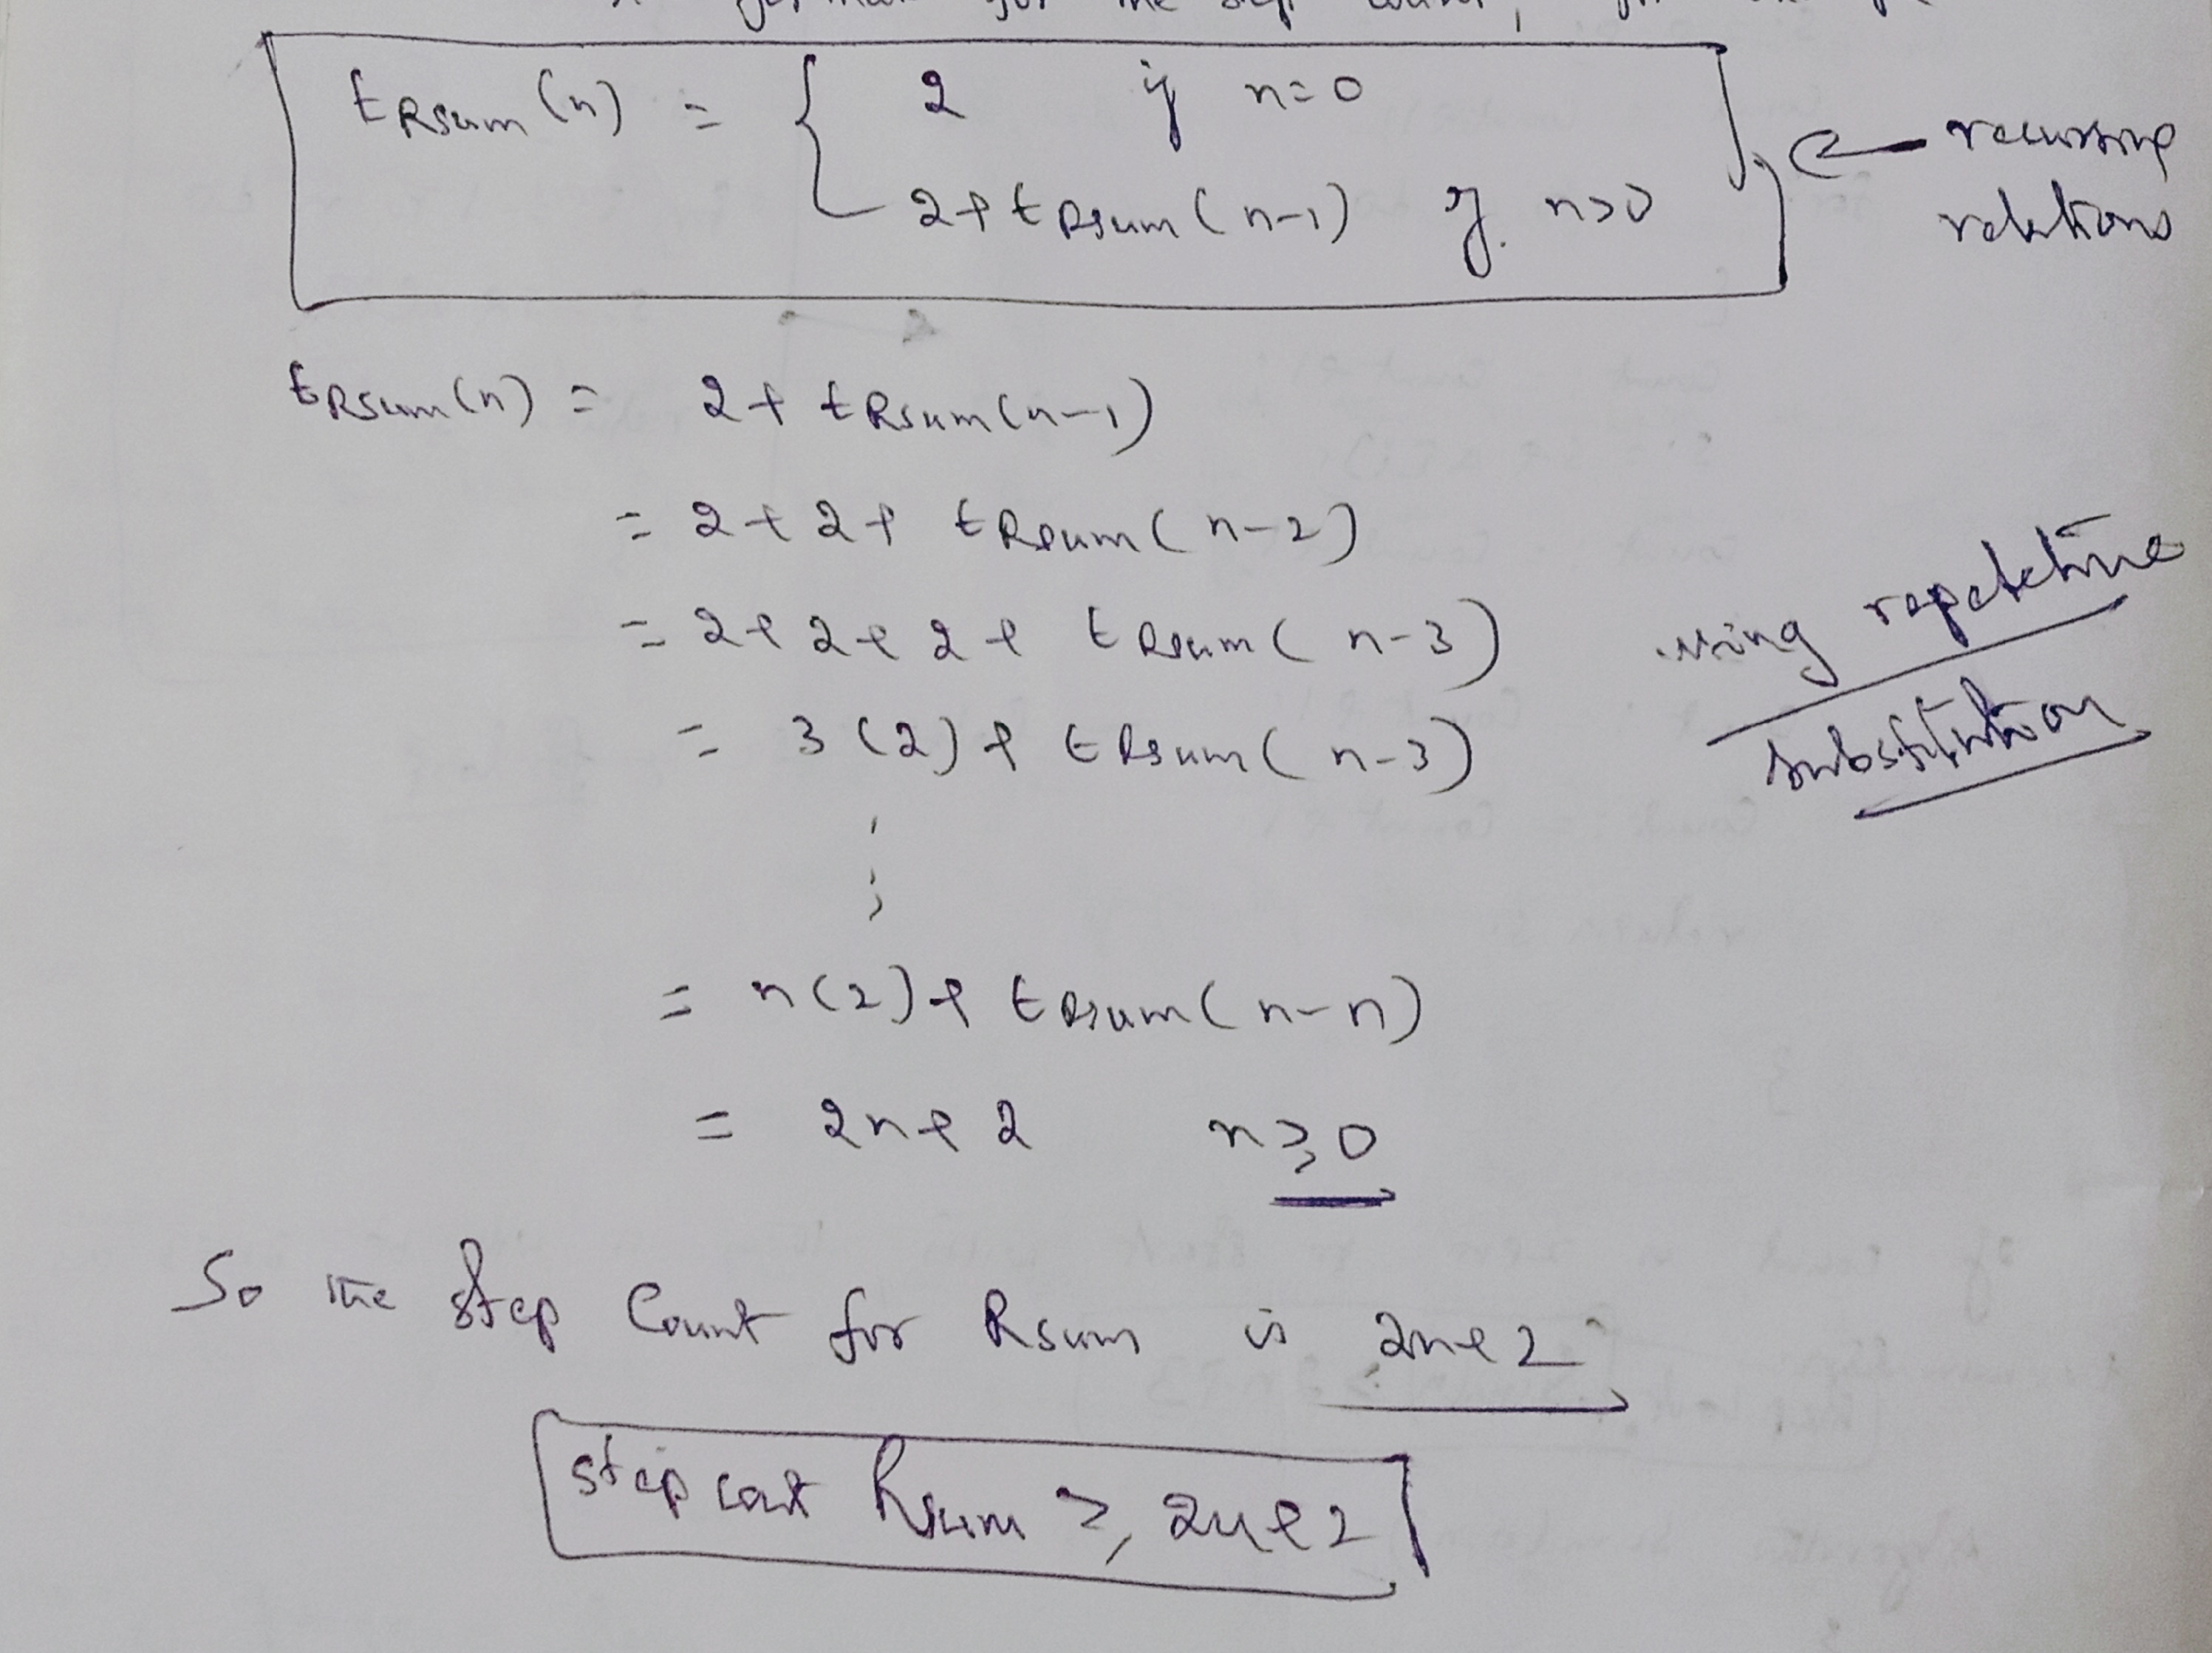 for the step count,
t Rsum (n) = { 2 if n=0
2+t Rsum (n-1) if n>0
← recursive
relations
t Rsum (n) = 2+ t Rsum (n-1)
= 2+2+ t Rsum (n-2)
= 2+2+2+ t Rsum (n-3)
= 3(2)+ t Rsum (n-3)
using repetetive
substitution
⋮
= n(2)+ t Rsum (n-n)
= 2n+2 n≥0
So the step Count for Rsum is 2n+2
step count Rsum ≥ 2n+2